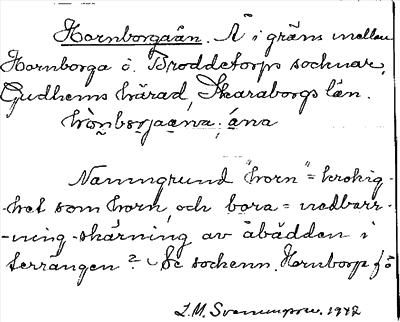 Hornborgaån. Å i gräns mellan
Hornborga o. Broddetorps socknar,
Gudhems härad, Skaraborgs län.
hònborjaana, ána
Namngrund "horn" = krokig-
-het som horn, och bora = nedbarr-
-ning-skärning av åbädden i
terrängen? Se sockenn. Hornborga
1942